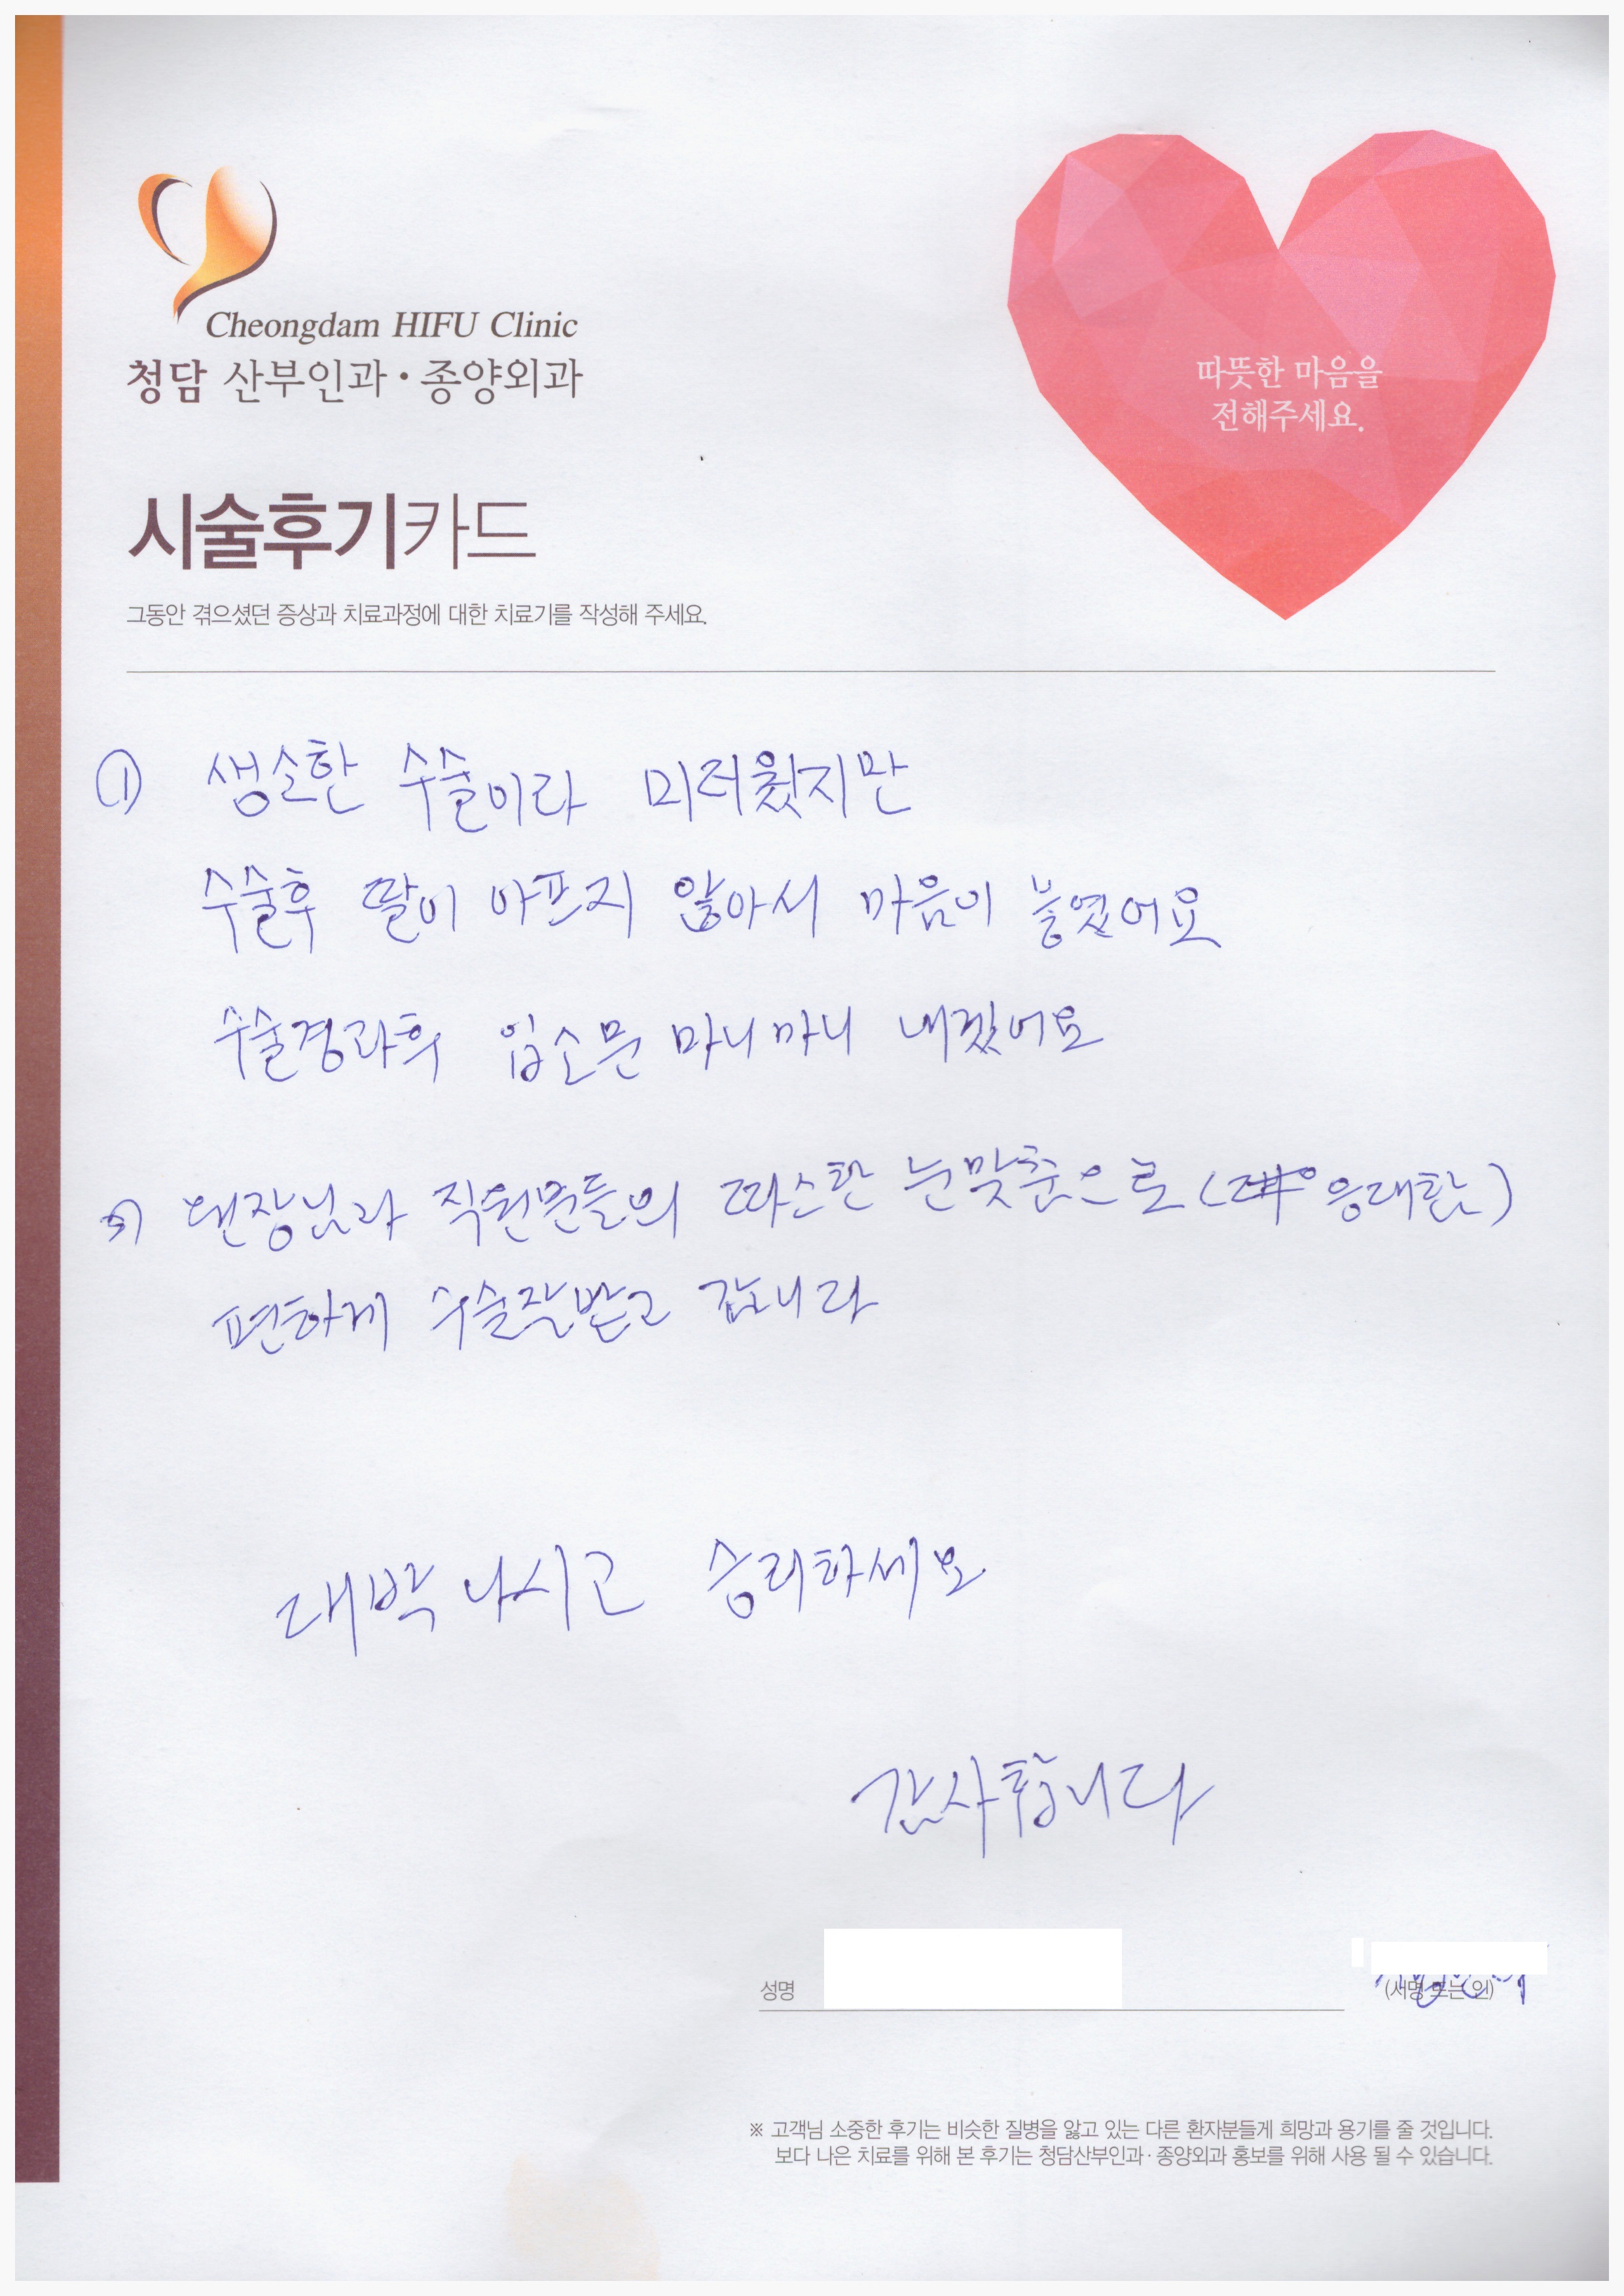 Cheongdam HIFU Clinic
청담 산부인과·종양외과
따뜻한 마음을
전해주세요.
시술후기카드
그동안 겪으셨던 증상과 치료과정에 대한 치료기를 작성해 주세요.
① 생소한 수술이라 미려웠지만
수술후 딸이 아프지 않아서 마음이 놓였어요
수술경과후 입소문 마니마니 내겠어요
원장님과 직원분들의 따스한 눈맞춤으로 ( 응대함)
편하게 수술잘받고 갑니다
대박 나시고 승리하세요
감사합니다
성명
(서명 또는 인)
※ 고객님 소중한 후기는 비슷한 질병을 앓고 있는 다른 환자분들게 희망과 용기를 줄 것입니다.
보다 나은 치료를 위해 본 후기는 청담산부인과·종양외과 홍보를 위해 사용 될 수 있습니다.